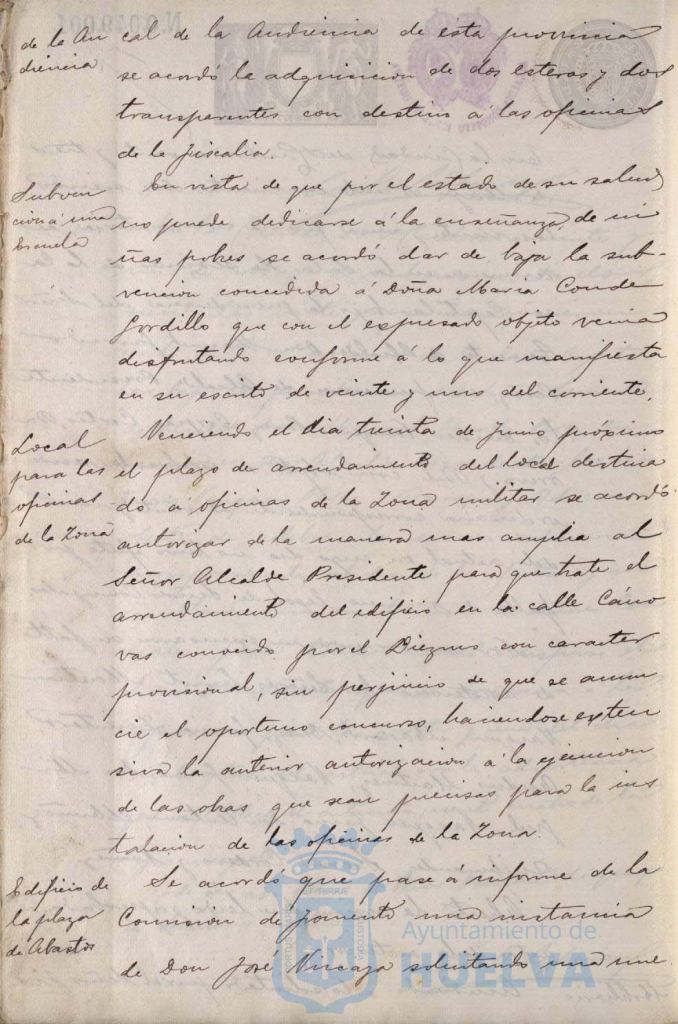 de la Au
diencia
cal de la Audiencia de esta provincia
se acordó la adquisicion de dos esteras y dos
transparentes con destino á las oficinas
de la fiscalia.
Subven
cion á una
Escuela
En vista de que por el estado de su salud
no puede dedicarse á la enseñanza de ni
ñas pobres se acordó dar de baja la sub-
vencion concedida á Doña Maria Conde
Gordillo que con el espresado objeto venia
disfrutando conforme á lo que manifiesta
en su escrito de veinte y uno del corriente.
Local
para las
oficinas
de la Zona
Venciendo el dia treinta de Junio próximo
el plazo de arrendamiento del local destina
do á oficinas de la Zona militar se acordó
autorizar de la manera mas amplia al
Señor Alcalde Presidente para que trate el
arrendamiento del edificio en la calle Cáno
vas conocido por el Diezmo con caracter
provisional, sin perjuicio de que se anun
cie el oportuno concurso, haciendose exten
siva la anterior autorizacion á la ejecucion
de las obras que sean precisas para la ins
talacion de las oficinas de la Zona.
Edificio de
la plaza
de Abastos
Se acordó que pase á informe de la
Comision de fomento una instancia
de Don José Vizcaya solicitando una nue
Ayuntamiento de
HUELVA